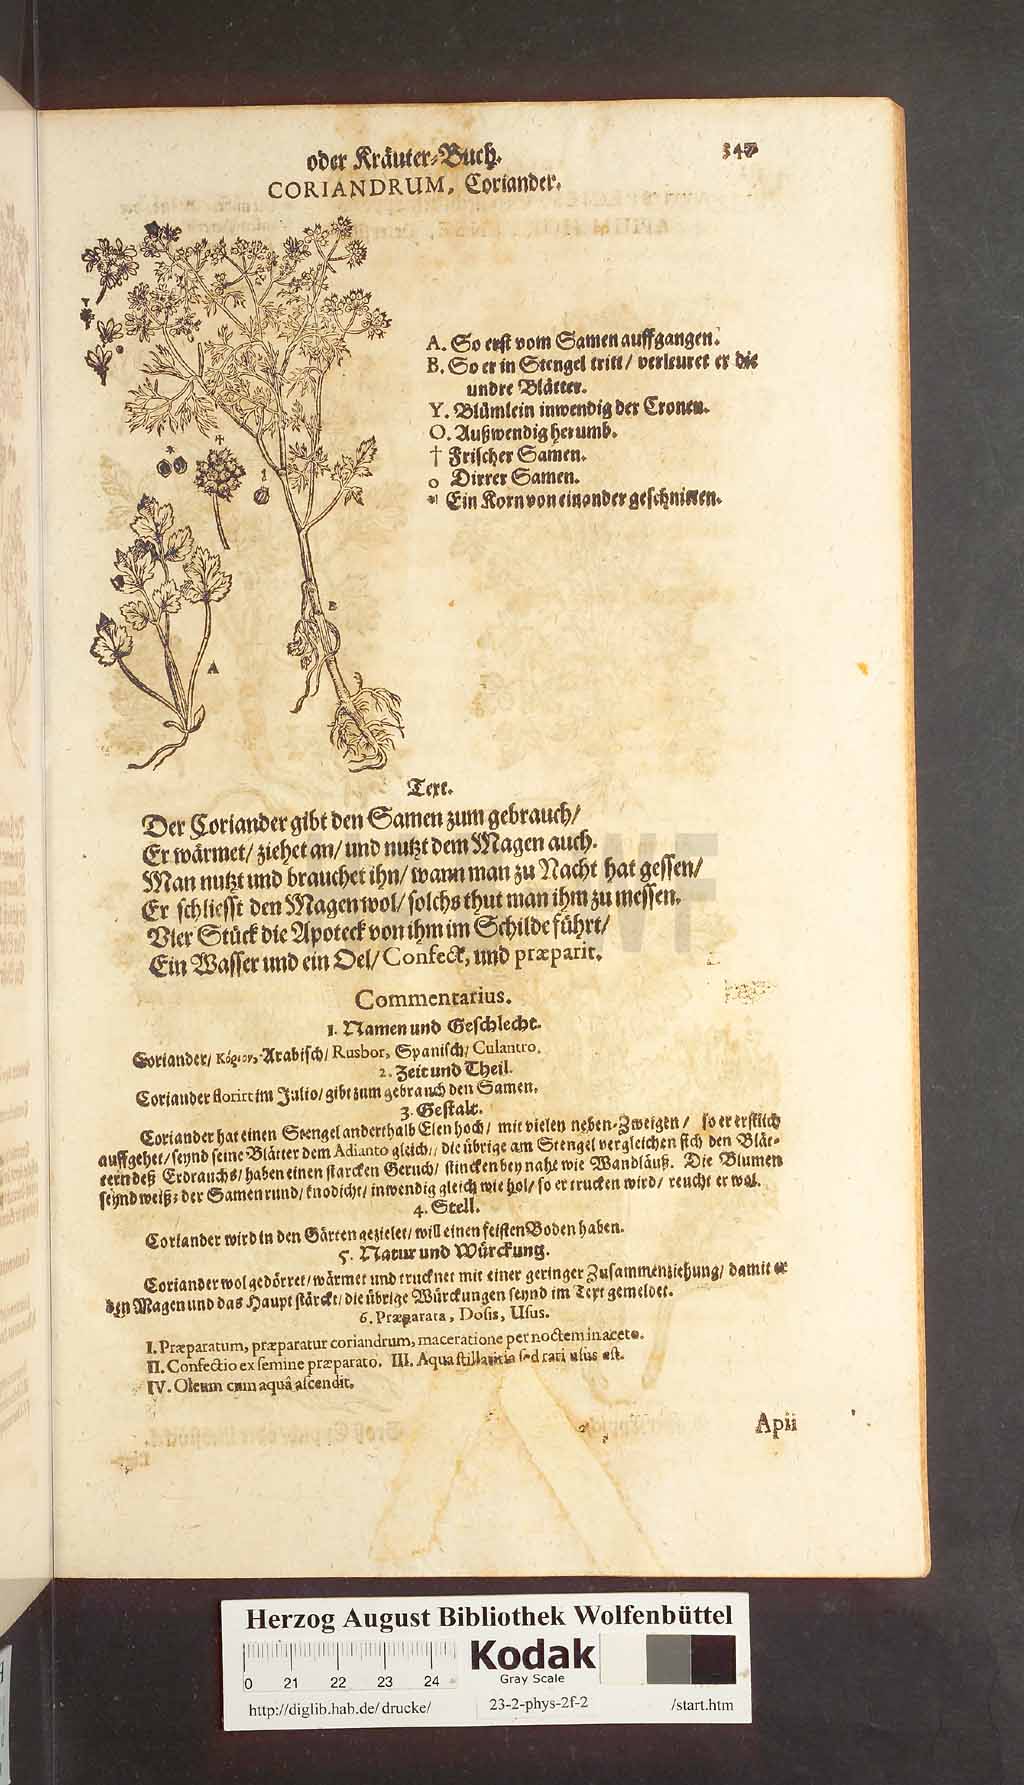 oder Kräuter-Buch.
CORIANDRUM, Coriander.
A. So erst vom Samen auffgangen.
B. So er in Stengel tritt/ verleuret er die
undre Blätter.
Y. Blümlein inwendig der Cronen.
O. Außwendig herumb.
† Frischer Samen.
o Dirrer Samen.
* Ein Korn von einander geschnitten.
Y
*
†
B
A
Text.
Der Coriander gibt den Samen zum gebrauch/
Er wärmet/ ziehet an/ und nutzt dem Magen auch.
Man nutzt und brauchet ihn/ wann man zu Nacht hat gessen/
Er schliesst den Magen wol/ solchs thut man ihm zu messen.
Vier Stück die Apoteck von ihm im Schilde führt/
Ein Wasser und ein Oel/ Confect, und præparirt.
Commentarius.
1. Namen und Geschlecht.
Coriander/ Κόριον, Arabisch/ Rusbor, Spanisch/ Culantro.
2. Zeit und Theil.
Coriander florirt im Julio/ gibt zum gebrauch den Samen.
3. Gestalt.
Coriander hat einen Stengel anderthalb Elen hoch/ mit vielen neben-Zweigen/ so er erstlich
auffgehet/ seynd seine Blätter dem Adianto gleich/ die übrige am Stengel vergleichen sich den Blät-
tern deß Erdrauchs/ haben einen starcken Geruch/ stincken bey nahe wie Wandläuß. Die Blumen
seynd weiß: der Samen rund/ knodicht/ inwendig gleich wie hol/ so er trucken wird/ reucht er wol.
4. Stell.
Coriander wird in den Gärten gezielet/ will einen feisten Boden haben.
5. Natur und Würckung.
Coriander wol gedörret/ wärmet und trucknet mit einer geringer Zusammenziehung/ damit er
den Magen und das Haupt stärckt/ die übrige Würckungen seynd im Text gemeldet.
6. Præparata, Dosis, Usus.
I. Præparatum, præparatur coriandrum, maceratione per noctem in aceto.
II. Confectio ex semine præparato. III. Aqua stillatitia sed rari usus est.
IV. Oleum cum aquâ ascendit.
Apii
Herzog August Bibliothek Wolfenbüttel
0 21 22 23 24
Kodak
Gray Scale
http://diglib.hab.de/drucke/ 23-2-phys-2f-2 /start.htm